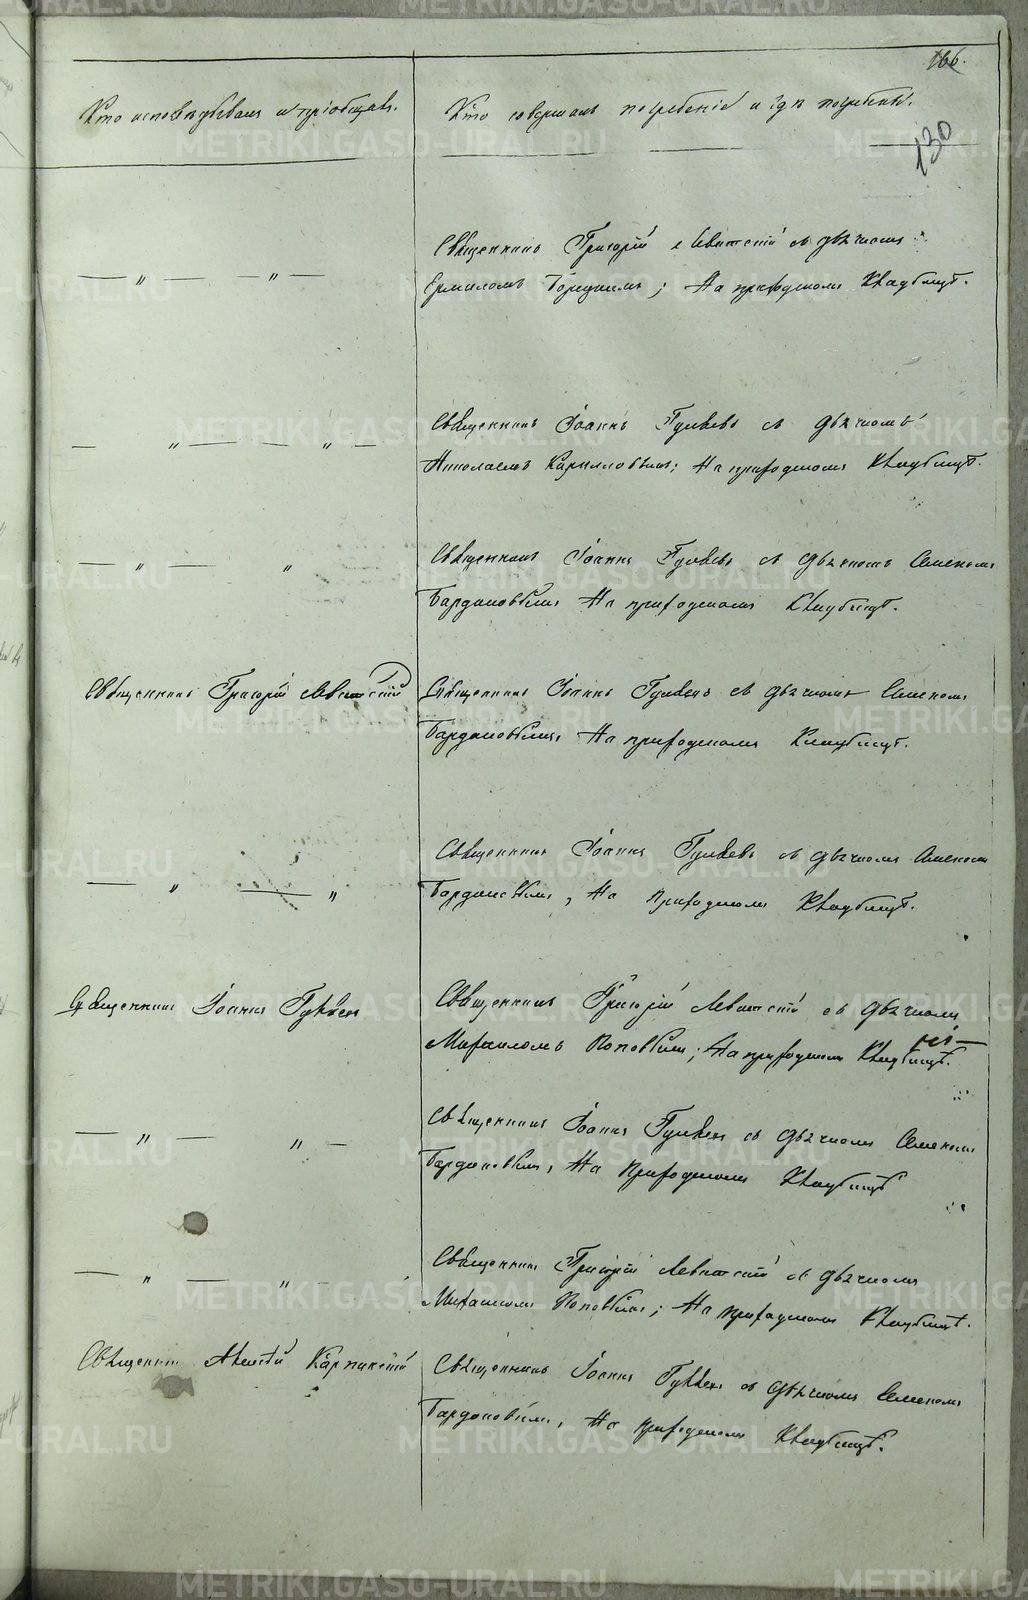 166.
130
Кто исповѣдывалъ и пріобщалъ.
Кто совершалъ погребеніе и гдѣ погребены.
— " — — " —
Священникъ Григорій Левитскій съ дьячкомъ
Ермиломъ; На приходскомъ Кладбищѣ.
— " — — " —
Священникъ Іоаннъ Гуляевъ съ дьячкомъ
Николаемъ Кирилловымъ; На приходскомъ Кладбищѣ.
— " — "
Священникъ Іоаннъ Гуляевъ съ дьячкомъ Семеномъ
Бардаковымъ На приходскомъ Кладбищѣ.
Священникъ Григорій Левитскій
Священникъ Іоаннъ Гуляевъ съ дьячкомъ Семеномъ
Бардаковымъ, На приходскомъ Кладбищѣ.
— " — "
Священникъ Іоаннъ Гуляевъ съ дьячкомъ Семеномъ
Бардаковымъ, На приходскомъ Кладбищѣ.
Священникъ Іоаннъ Гуляевъ
Священникъ Григорій Левитскій съ дьячкомъ
Михаиломъ Поповымъ; На приходскомъ Кладбищѣ.
— " — " —
Священникъ Іоаннъ Гуляевъ съ дьячкомъ Семеномъ
Бардаковымъ, На приходскомъ Кладбищѣ
— " — "
Священникъ Григорій Левитскій съ дьячкомъ
Михаиломъ Поповымъ; На приходскомъ Кладбищѣ.
Священникъ Алексѣй Карпинскій
Священникъ Іоаннъ Гуляевъ съ дьячкомъ Семеномъ
Бардаковымъ, На приходскомъ Кладбищѣ.
METRIKI.GASO-URAL.RU